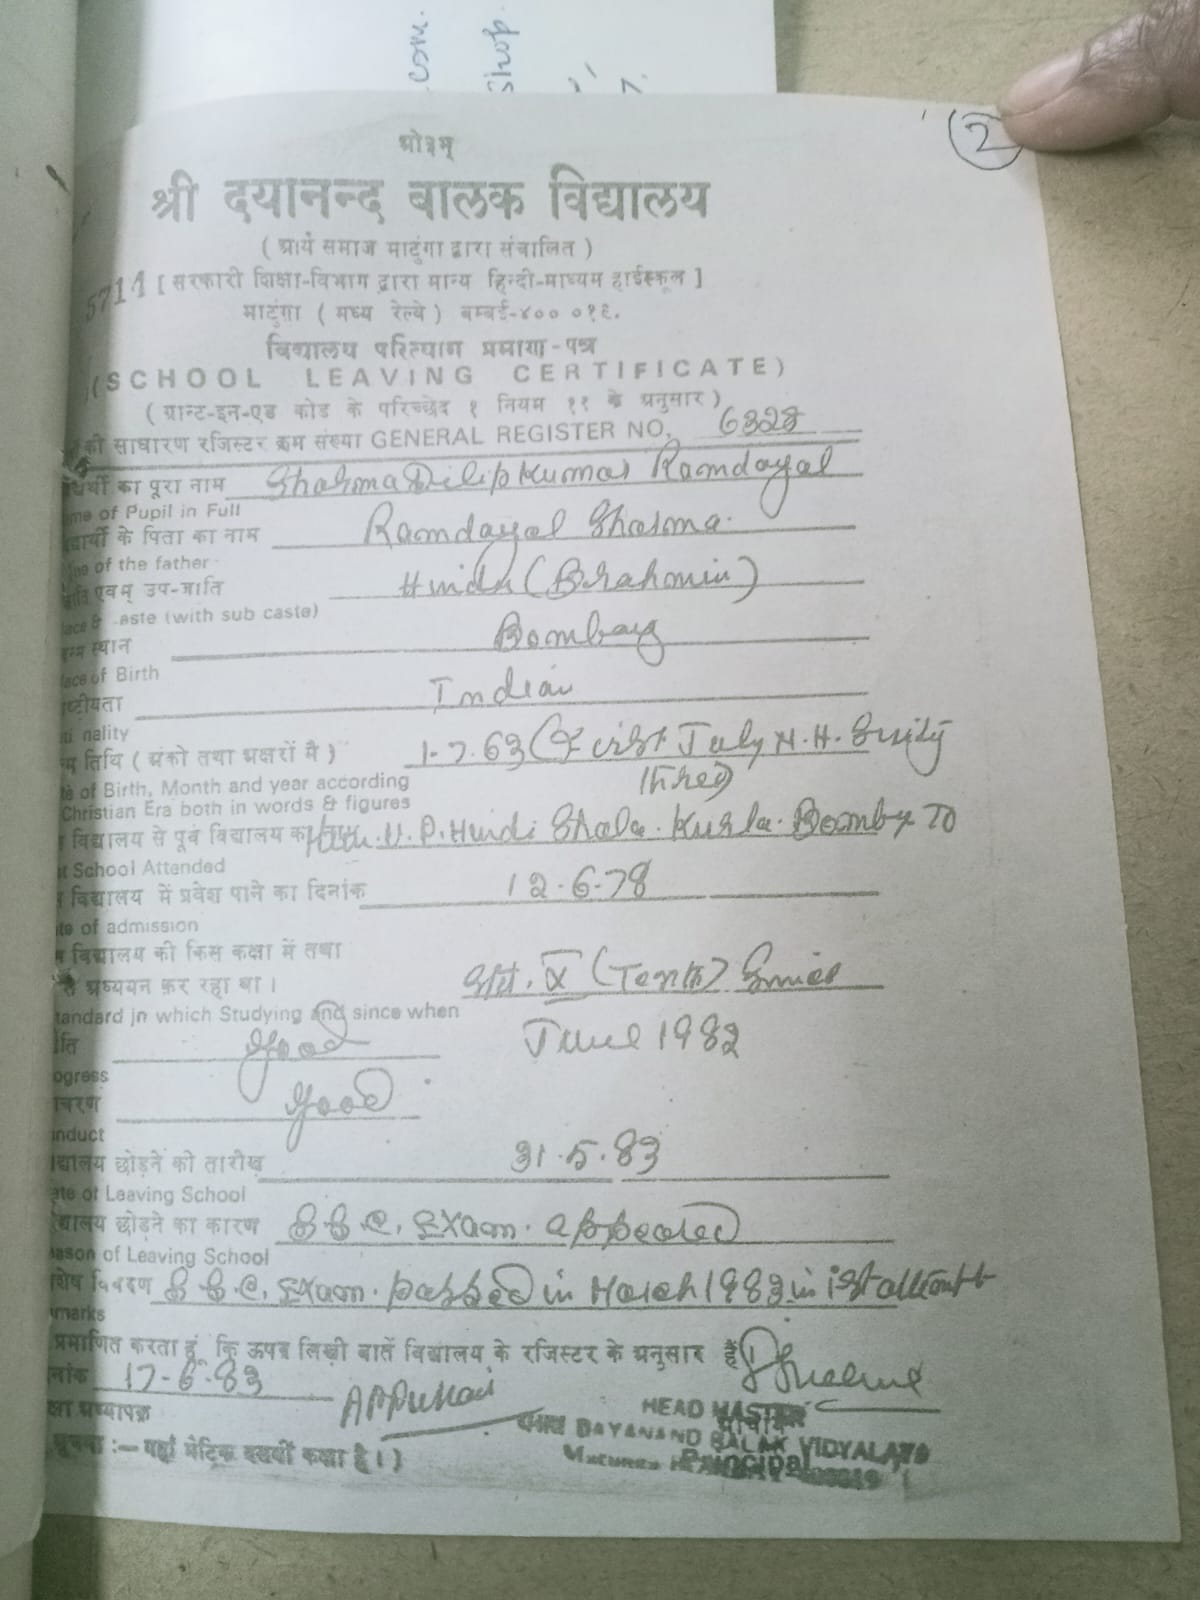 .com.
shop.
2
ओ३म्
श्री दयानन्द बालक विद्यालय
( आर्य समाज माटुंगा द्वारा संचालित )
5714 [ सरकारी शिक्षा-विभाग द्वारा मान्य हिन्दी-माध्यम हाईस्कूल ]
माटुंगा ( मध्य रेल्वे ) बम्बई-४०० ०१९.
विद्यालय परित्याग प्रमाण-पत्र
(SCHOOL LEAVING CERTIFICATE)
( ग्रान्ट-इन-एड कोड के परिच्छेद १ नियम ११ के अनुसार )
की साधारण रजिस्टर क्रम संख्या GENERAL REGISTER NO. 6328
का पूरा नाम Sharma Dilipkumar Ramdayal
me of Pupil in Full
के पिता का नाम Ramdayal Sharma.
ne of the father
एवम् उप-जाति Hindu (Brahmin)
ace & aste (with sub caste)
स्थान Bombay
ace of Birth
ष्ट्रीयता Indian
nality
तिथि ( अंको तथा अक्षरों मै ) 1-7.63 (First July N.H. Sixty
of Birth, Month and year according three)
Christian Era both in words & figures
विद्यालय से पूर्व विद्यालय का U.P. Hindi Shala. Kurla. Bomby 70
t School Attended
विद्यालय में प्रवेश पाने का दिनांक 12.6.78
te of admission
विद्यालय की किस कक्षा में तथा
से अध्ययन कर रहा था । Std. X (Tenth) Since
tandard in which Studying and since when
ति Good June 1982
ogress
चरण Good
nduct
द्यालय छोड़ने को तारीख 31.5.83
ate of Leaving School
द्यालय छोड़ने का कारण S.S.C. Exam. appeared
ason of Leaving School
शेष विवरण S.S.C. Exam. passed in March 1983 in ist attempt
marks
प्रमाणित करता हूं, कि ऊपर लिखी बातें विद्यालय के रजिस्टर के अनुसार हैं।
नांक 17-6-83
HEAD MASTER
क्षा अध्यापक
SHRI DAYANAND BALAK VIDYALAYA
सूचना :— यहाँ मैट्रिक दसवीं कक्षा है। )
Principal